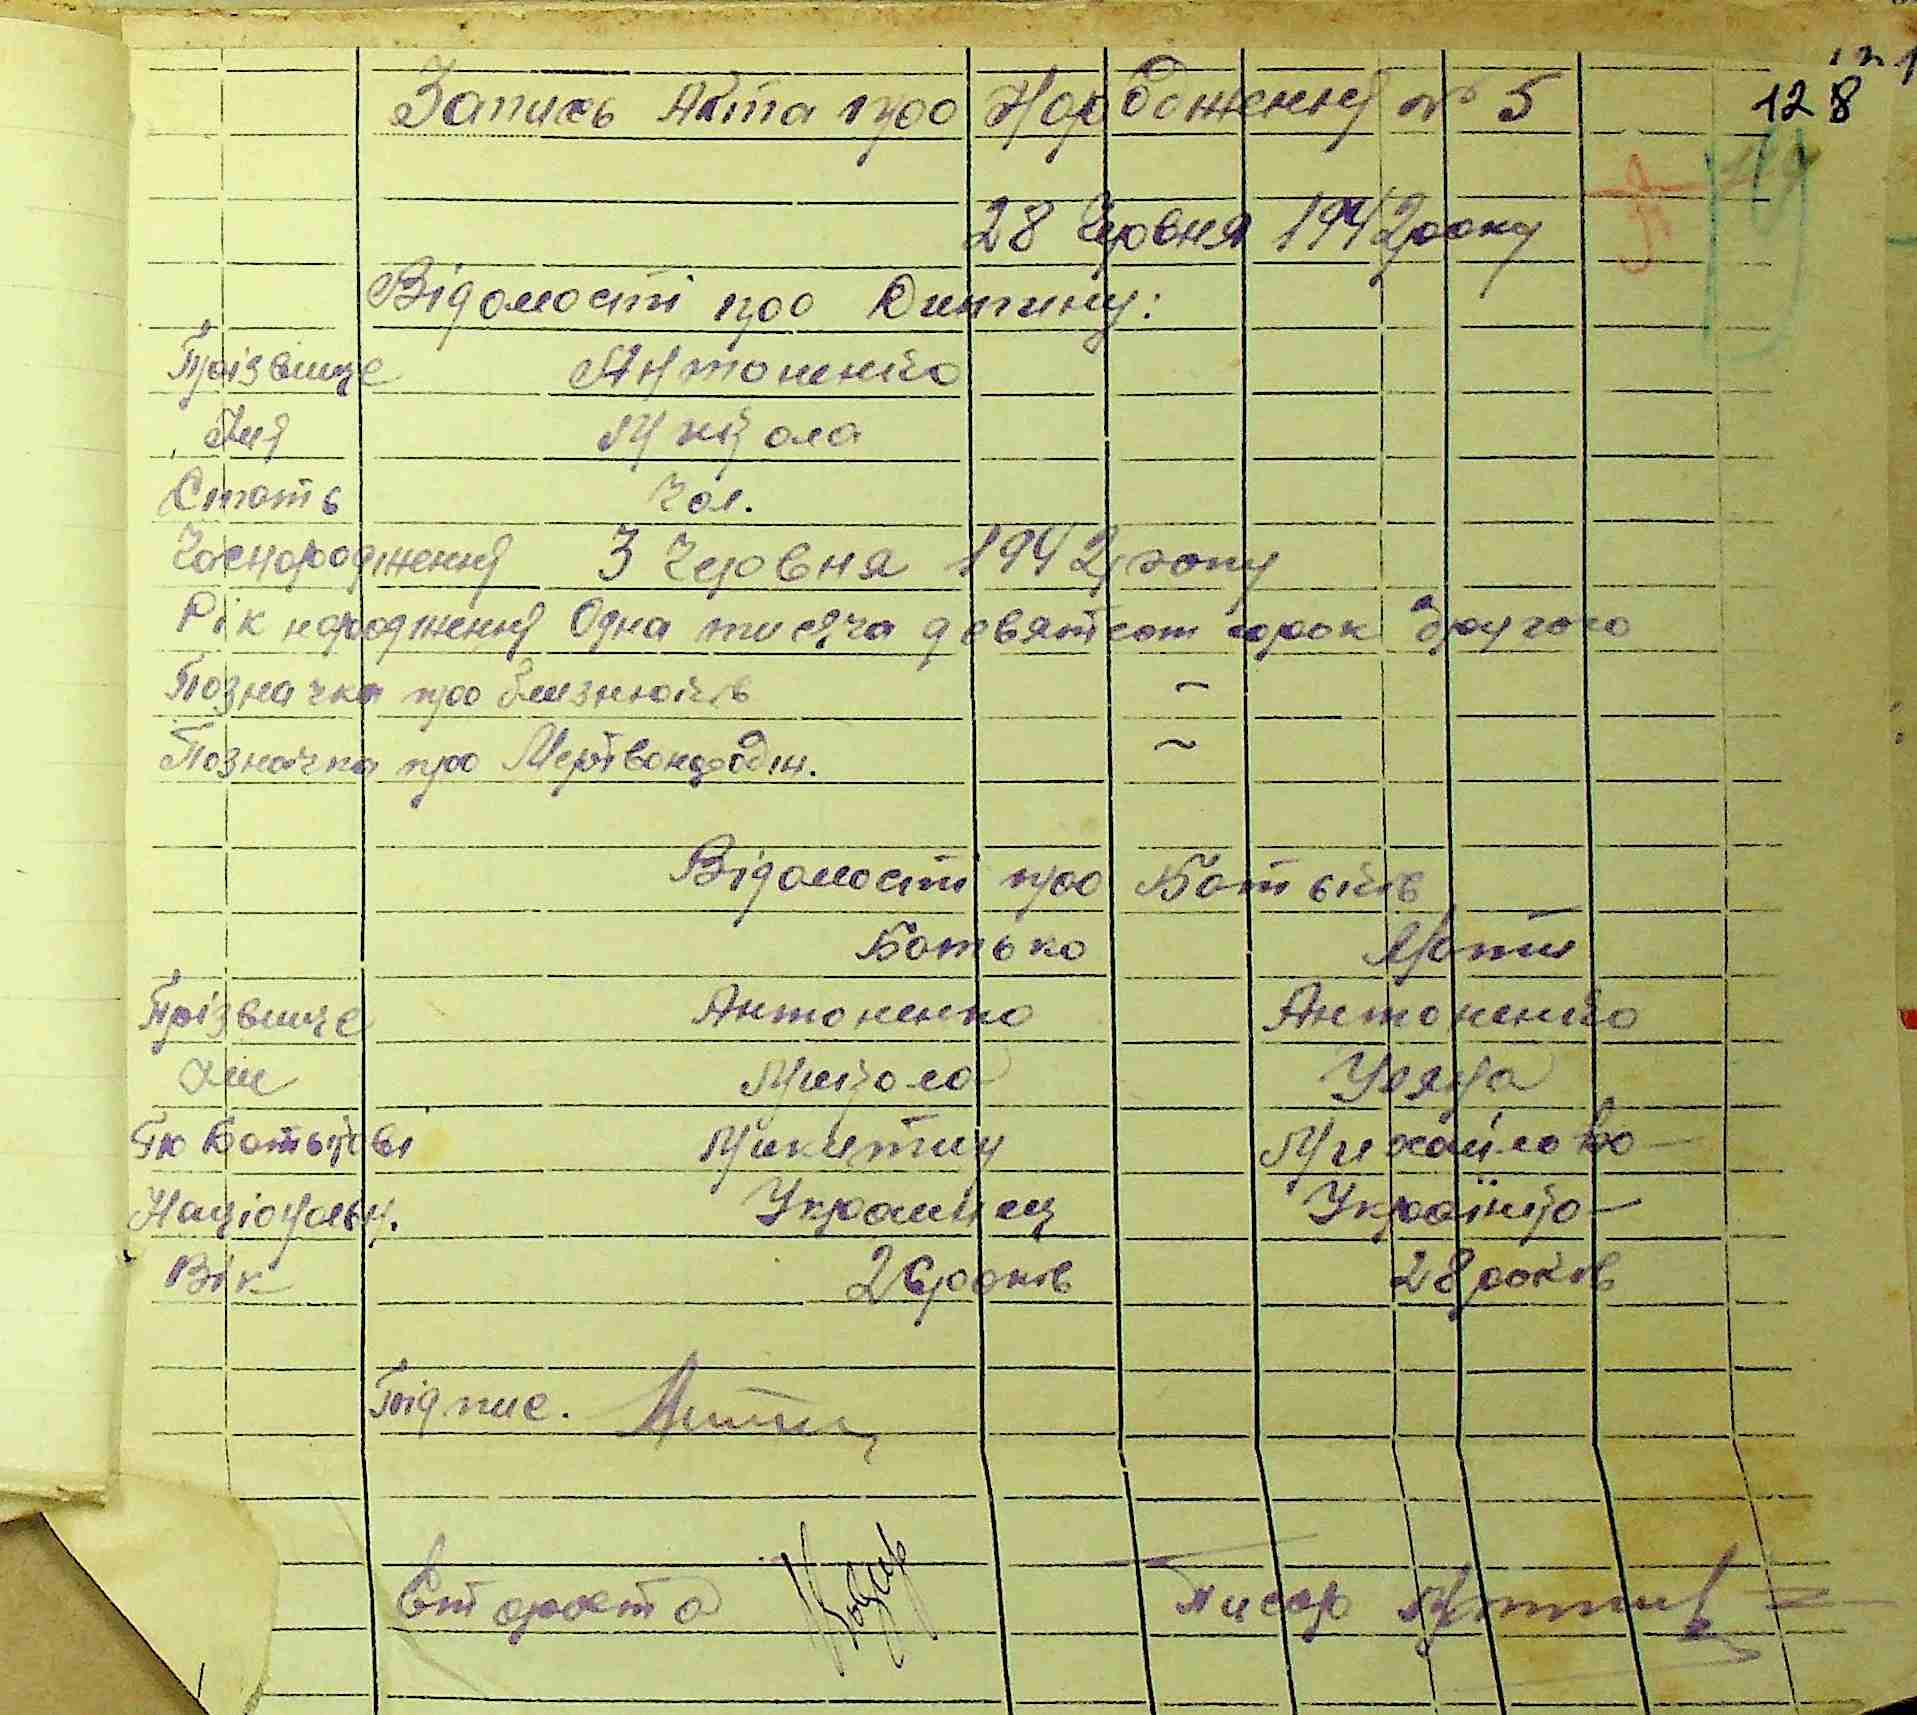 128
Запись Акта про Нородження № 5
28 Червня 1942 року
Відомості про Дитину:
Прізвище Антоненко
Имя Микола
Стать Чол.
Час народження 3 Червня 1942 року
Рік народження Одна тисяча девятсот сорок другого
Позначка про близнюків ~
Позначка про Мертвонародж. ~
Відомості про Батьків
Батько Мати
Прізвище Антоненко Антоненко
Имя Микола Уляна
По Батькові Микитич Михайловна
Національн. Украинец Українка
Вік 26 років 28 років
Підпис.
Староста
Писар